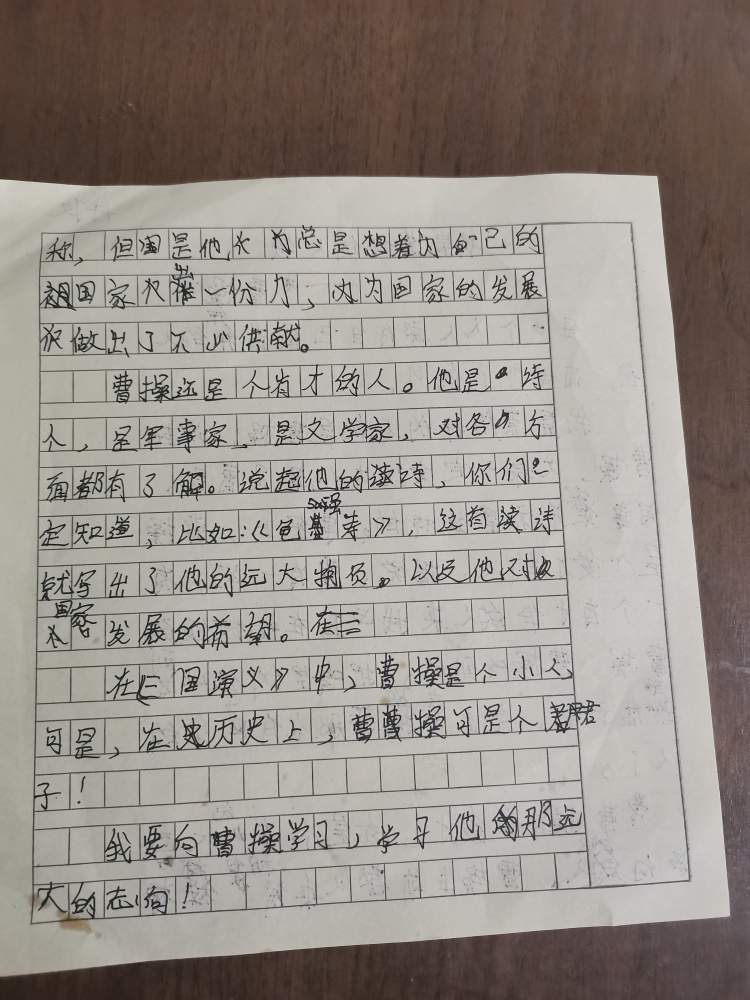 称，但是他总是想着为自己的
国家出一份力，为国家的发展
做出了不少供献。
曹操还是个有才的人。他是诗
人，是军事家，是文学家，对各方
面都有了解。说起他的诗，你们一
定知道，比如：《龟虽寿》，这首诗
就写出了他的远大抱负。以及他对
国家发展的希望。
在《三国演义》中，曹操是个小人，
可是，在历史上，曹操可是个君
子！
我要向曹操学习，学习他那远
大的志向！